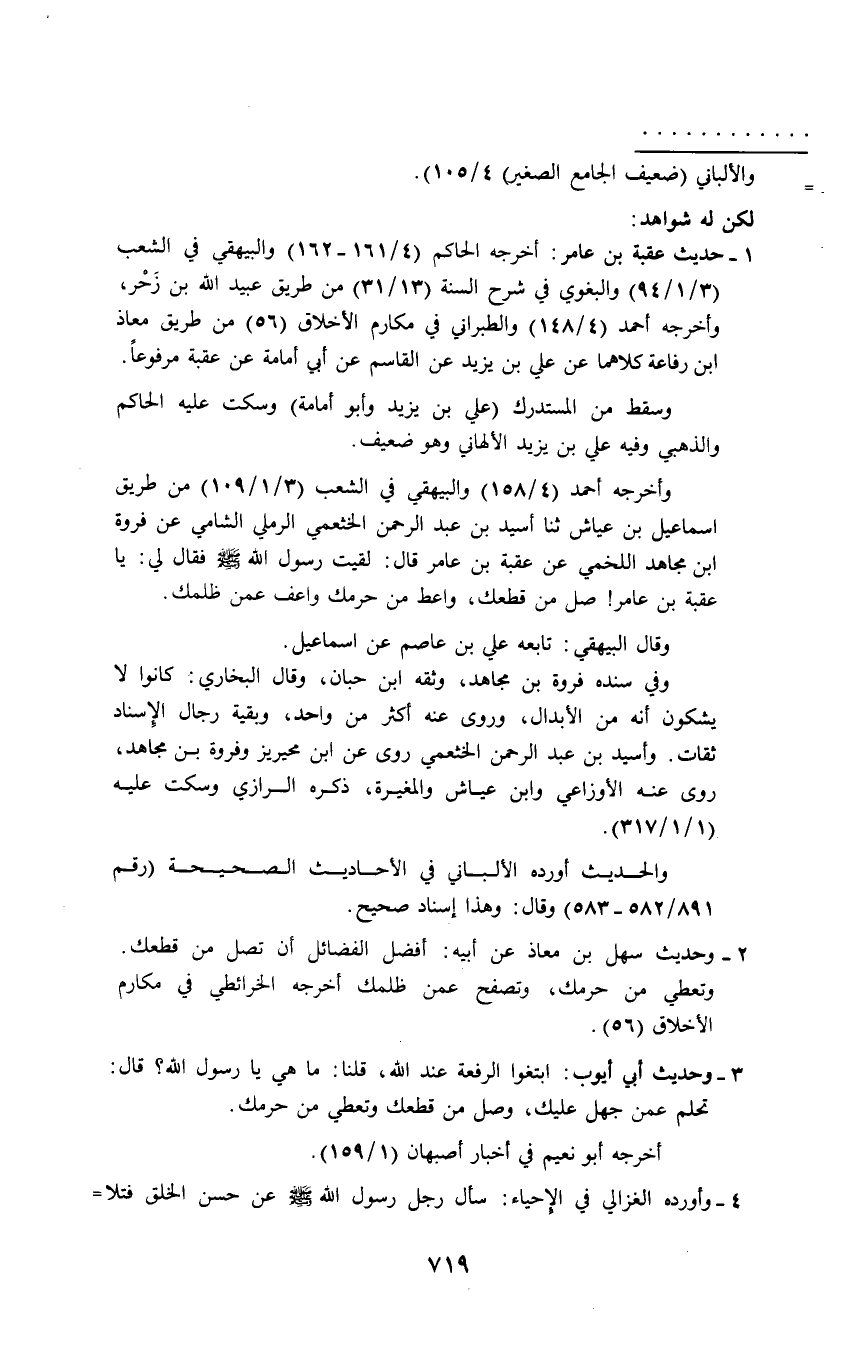 . . . . . . . . . . . .
= والألباني (ضعيف الجامع الصغير) ٤/ ١٠٥).
لكن له شواهد:
١ ـ حديث عقبة بن عامر: أخرجه الحاكم (٤/ ١٦١ ـ ١٦٢) والبيهقي في الشعب
(٣/ ١/ ٩٤) والبغوي في شرح السنة (١٣/ ٣١) من طريق عبيد الله بن زَحْر،
وأخرجه أحمد (٤/ ١٤٨) والطبراني في مكارم الأخلاق (٥٦) من طريق معاذ
ابن رفاعة كلاهما عن علي بن يزيد عن القاسم عن أبي أمامة عن عقبة مرفوعاً.
وسقط من المستدرك (علي بن يزيد وأبو أمامة) وسكت عليه الحاكم
والذهبي وفيه علي بن يزيد الألهاني وهو ضعيف.
وأخرجه أحمد (٤/ ١٥٨) والبيهقي في الشعب (٣/ ١/ ١٠٩) من طريق
اسماعيل بن عياش ثنا أسيد بن عبد الرحمن الخثعمي الرملي الشامي عن فروة
ابن مجاهد اللخمي عن عقبة بن عامر قال: لقيت رسول الله ﷺ فقال لي: يا
عقبة بن عامر! صل من قطعك، واعط من حرمك واعف عمن ظلمك.
وقال البيهقي: تابعه علي بن عاصم عن اسماعيل.
وفي سنده فروة بن مجاهد، وثقه ابن حبان، وقال البخاري: كانوا لا
يشكون أنه من الأبدال، وروى عنه أكثر من واحد، وبقية رجال الإسناد
ثقات. وأسيد بن عبد الرحمن الخثعمي روى عن ابن محيريز وفروة بـن مجاهد،
روى عنـه الأوزاعي وابن عيـاش والمغيـرة، ذكـره الـرازي وسكت عليـه
(١/ ١/ ٣١٧).
والحـديـث أورده الألـبـاني في الأحـاديـث الـصـحـيـحـة (رقـم
٨٩١/ ٥٨٢ ـ ٥٨٣) وقال: وهذا إسناد صحيح.
٢ ـ وحديث سهل بن معاذ عن أبيه: أفضل الفضائل أن تصل من قطعك.
وتعطي من حرمك، وتصفح عمن ظلمك أخرجه الخرائطي في مكارم
الأخلاق (٥٦).
٣ ـ وحديث أبي أيوب: ابتغوا الرفعة عند الله، قلنا: ما هي يا رسول الله؟ قال:
تحلم عمن جهل عليك، وصل من قطعك وتعطي من حرمك.
أخرجه أبو نعيم في أخبار أصبهان (١/ ١٥٩).
٤ ـ وأورده الغزالي في الإحياء: سأل رجل رسول الله ﷺ عن حسن الخلق فتلا=
٧١٩